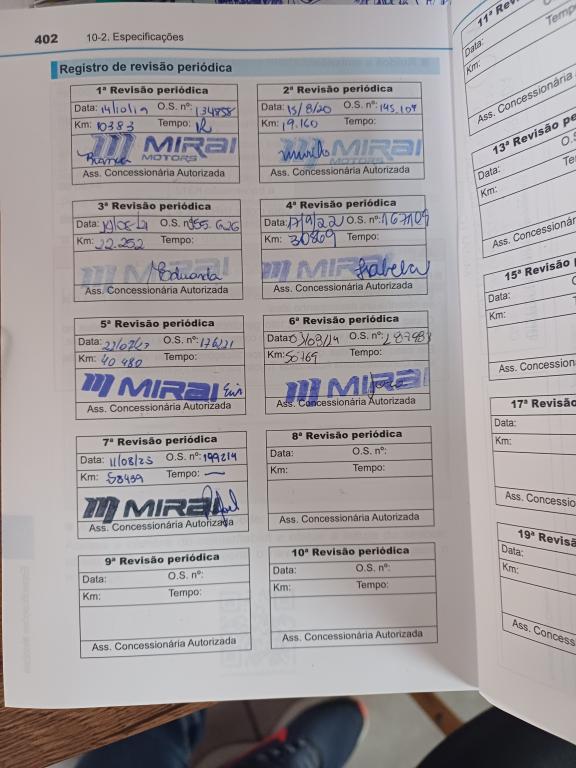 402 10-2. Especificações
Registro de revisão periódica
1ª Revisão periódica
Data: 14/10/19 O.S. nº: 134858
Km: 10383 Tempo:
MIRAI
MOTORS
Ass. Concessionária Autorizada
2ª Revisão periódica
Data: 15/8/20 O.S. nº: 145.107
Km: 19.160 Tempo:
Murilo MIRAI
MOTORS
Ass. Concessionária Autorizada
3ª Revisão periódica
Data: O.S. nº
Km: 22.252 Tempo:
MIRAI
Eduarda
Ass. Concessionária Autorizada
4ª Revisão periódica
Data: 17/9/22 O.S. nº: 167109
Km: 30869 Tempo:
MIRAI
Isabela
Ass. Concessionária Autorizada
5ª Revisão periódica
Data: O.S. nº: 176121
Km: 40 480 Tempo:
MIRAI
Ass. Concessionária Autorizada
6ª Revisão periódica
Data: O.S. nº:
Km: 50769 Tempo:
MIRAI
Ass. Concessionária Autorizada
7ª Revisão periódica
Data: 11/08/25 O.S. nº: 199214
Km: 58499 Tempo: —
MIRAI Rafael
Ass. Concessionária Autorizada
8ª Revisão periódica
Data: O.S. nº:
Km: Tempo:
Ass. Concessionária Autorizada
9ª Revisão periódica
Data: O.S. nº:
Km: Tempo:
Ass. Concessionária Autorizada
10ª Revisão periódica
Data: O.S. nº:
Km: Tempo:
Ass. Concessionária Autorizada
11ª
Data:
Km:
Ass. Concessionária
13ª Revisão
Data:
Km:
Ass. Concessionária
15ª Revisão
Data:
Km:
Ass. Concessionária
17ª Revisão
Data:
Km:
Ass. Concessionária
19ª Revisão
Data:
Km:
Ass.